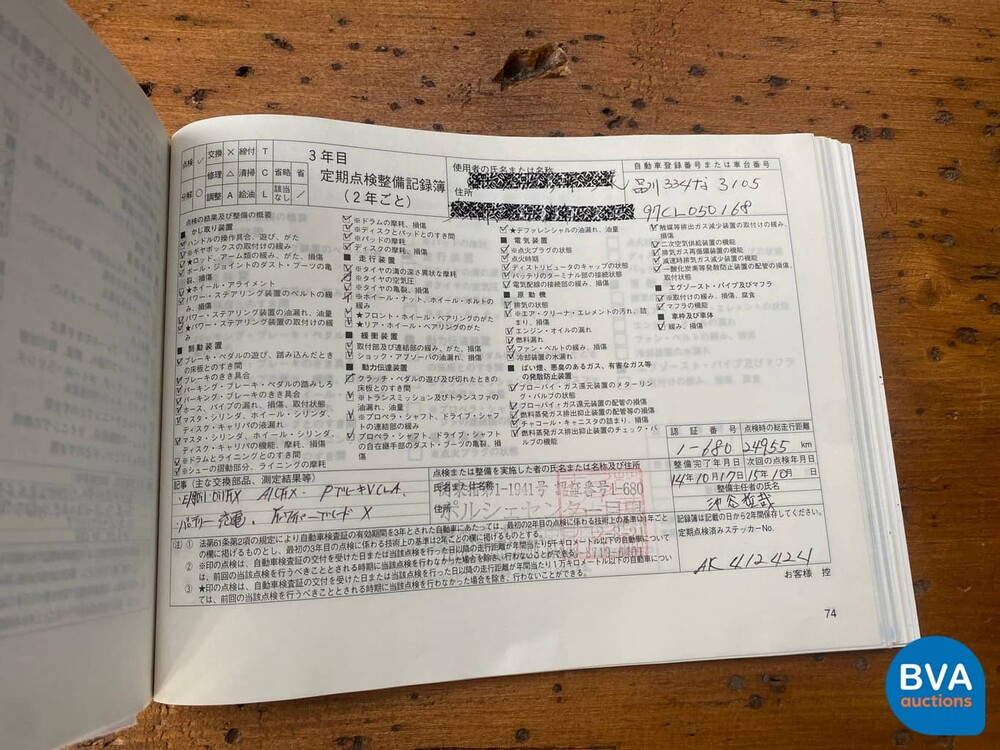 点検 ✓ 交換 × 締付 T
修理 △ 清掃 C 省略 省
分解 ○ 調整 A 給油 L 該当なし /
3年目
定期点検整備記録簿
(2年ごと)
使用者の氏名または名称
住所
自動車登録番号または車台番号
品川 334 な 3105
97CL050168
点検の結果及び整備の概要
■ かじ取り装置
ハンドルの操作具合、遊び、がた
※ギヤボックスの取付けの緩み
★ロッド、アーム類の緩み、がた、損傷
ボール・ジョイントのダスト・ブーツの亀裂、損傷
★ホイール・アライメント
パワー・ステアリング装置のベルトの緩み、損傷
パワー・ステアリング装置の油漏れ、油量
★パワー・ステアリング装置の取付けの緩み
■ 制動装置
ブレーキ・ペダルの遊び、踏み込んだときの床板とのすき間
ブレーキのきき具合
パーキング・ブレーキ・ペダルの踏みしろ
パーキング・ブレーキのきき具合
ホース、パイプの漏れ、損傷、取付状態
マスタ・シリンダ、ホイール・シリンダ、ディスク・キャリパの液漏れ
マスタ・シリンダ、ホイール・シリンダ、ディスク・キャリパの機能、摩耗、損傷
※ドラムとライニングとのすき間
※シューの摺動部分、ライニングの摩耗
※ドラムの摩耗、損傷
※ディスクとパッドとのすき間
※パッドの摩耗
ディスクの摩耗、損傷
■ 走行装置
※タイヤの溝の深さ異状な摩耗
※タイヤの空気圧
※タイヤの亀裂、損傷
※ホイール・ナット、ホイール・ボルトの緩み
★フロント・ホイール・ベアリングのがた
★リア・ホイール・ベアリングのがた
■ 緩衝装置
取付部及び連結部の緩み、がた、損傷
ショック・アブソーバの油漏れ、損傷
■ 動力伝達装置
クラッチ・ペダルの遊び及び切れたときの床板とのすき間
※トランスミッション及びトランスファの油漏れ、油量
※プロペラ・シャフト、ドライブ・シャフトの連結部の緩み
プロペラ・シャフト、ドライブ・シャフトの自在継手部のダスト・ブーツの亀裂、損傷
★デファレンシャルの油漏れ、油量
■ 電気装置
※点火プラグの状態
点火時期
ディストリビュータのキャップの状態
バッテリのターミナル部の接続状態
電気配線の接続部の緩み、損傷
■ 原動機
排気の状態
※エア・クリーナ・エレメントの汚れ、詰まり、損傷
エンジン・オイルの漏れ
燃料漏れ
ファン・ベルトの緩み、損傷
冷却装置の水漏れ
■ ばい煙、悪臭のあるガス、有害なガス等の発散防止装置
ブローバイ・ガス還元装置のメターリング・バルブの状態
ブローバイ・ガス還元装置の配管の損傷
燃料蒸発ガス排出抑止装置の配管等の損傷
チャコール・キャニスタの詰まり、損傷
燃料蒸発ガス排出抑止装置のチェック・バルブの機能
触媒等排出ガス減少装置の取付けの緩み、損傷
二次空気供給装置の機能
排気ガス再循環装置の機能
減速時排気ガス減少装置の機能
一酸化炭素等発散防止装置の配管の損傷、取付状態
■ エグゾースト・パイプ及びマフラ
※取付けの緩み、損傷、腐食
マフラの機能
■ 車枠及び車体
緩み、損傷
認証番号 点検時の総走行距離
1-680 24955 km
整備完了年月日 次回の点検年月日
14年10月17日 15年10月 日
整備主任者の氏名
記録簿は記載の日から2年間保存してください。
定期点検済みステッカーNo.
AK 412424
お客様 控
記事(主な交換部品、測定結果等)
点検または整備を実施した者の氏名または名称及び住所
氏名または名称
第1-1941号 認証番号1-680
住所
ポルシェセンター目黒
注 ① 法第61条第2項の規定により自動車検査証の有効期間を3年とされた自動車にあたっては、最初の2年目の点検に係わる技術上の基準は1年ごとの欄に掲げるものとし、最初の3年目の点検に係わる技術上の基準は2年ごとの欄に掲げるものとする。
② ※印の点検は、自動車検査証の交付を受けた日または当該点検を行った日以降の走行距離が年間当たり5千キロメートル以下の自動車については、前回の当該点検を行うべきこととされる時期に当該点検を行わなかった場合を除き、行わないことができる。
③ ★印の点検は、自動車検査証の交付を受けた日または当該点検を行った日以降の走行距離が年間当たり1万キロメートル以下の自動車については、前回の当該点検を行うべきこととされる時期に当該点検を行わなかった場合を除き、行わないことができる。
74
BVA
auctions